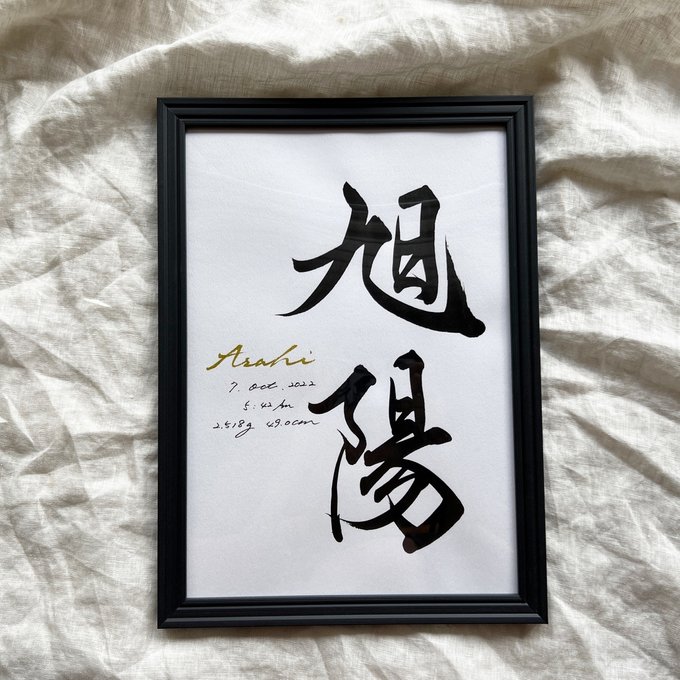 旭陽
Asahi
7. Oct. 2022
5:42 pm
2.518g 49.0cm